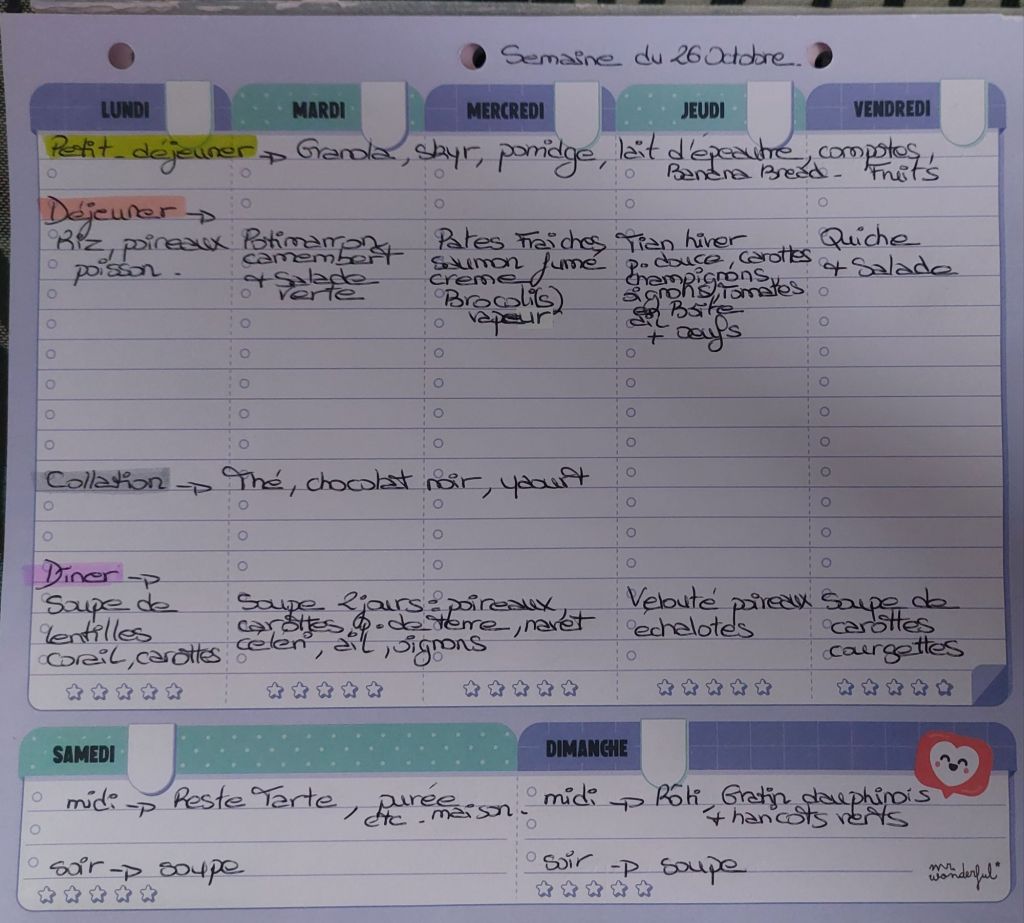 Semaine du 26 Octobre.
LUNDI MARDI MERCREDI JEUDI VENDREDI
Petit-déjeuner → Granola, skyr, porridge, lait d'épeautre, compotes,
Banana Bread - Fruits
Déjeuner →
Riz, poireaux
poisson.
Potimarron,
camembert
+ Salade
verte
Pates Fraîches
saumon fumé
creme
Brocolis)
vapeur
Tian hiver
p. douce, carottes
champignons,
oignons, Tomates
en Boîte
ail
+ œufs
Quiche
+ Salade
Collation → Thé, chocolat noir, yaourt
Diner →
Soupe de
lentilles
corail, carottes
Soupe 2 jours : poireaux,
carottes, p. de terre, navet
celeri, ail, oignons
Velouté poireaux
echalotes
Soupe de
carottes
courgettes
SAMEDI
midi → Reste Tarte, purée
etc. maison.
soir → soupe
DIMANCHE
midi → Rôti, Gratin dauphinois
+ haricots verts
soir → soupe
mr.
wonderful*